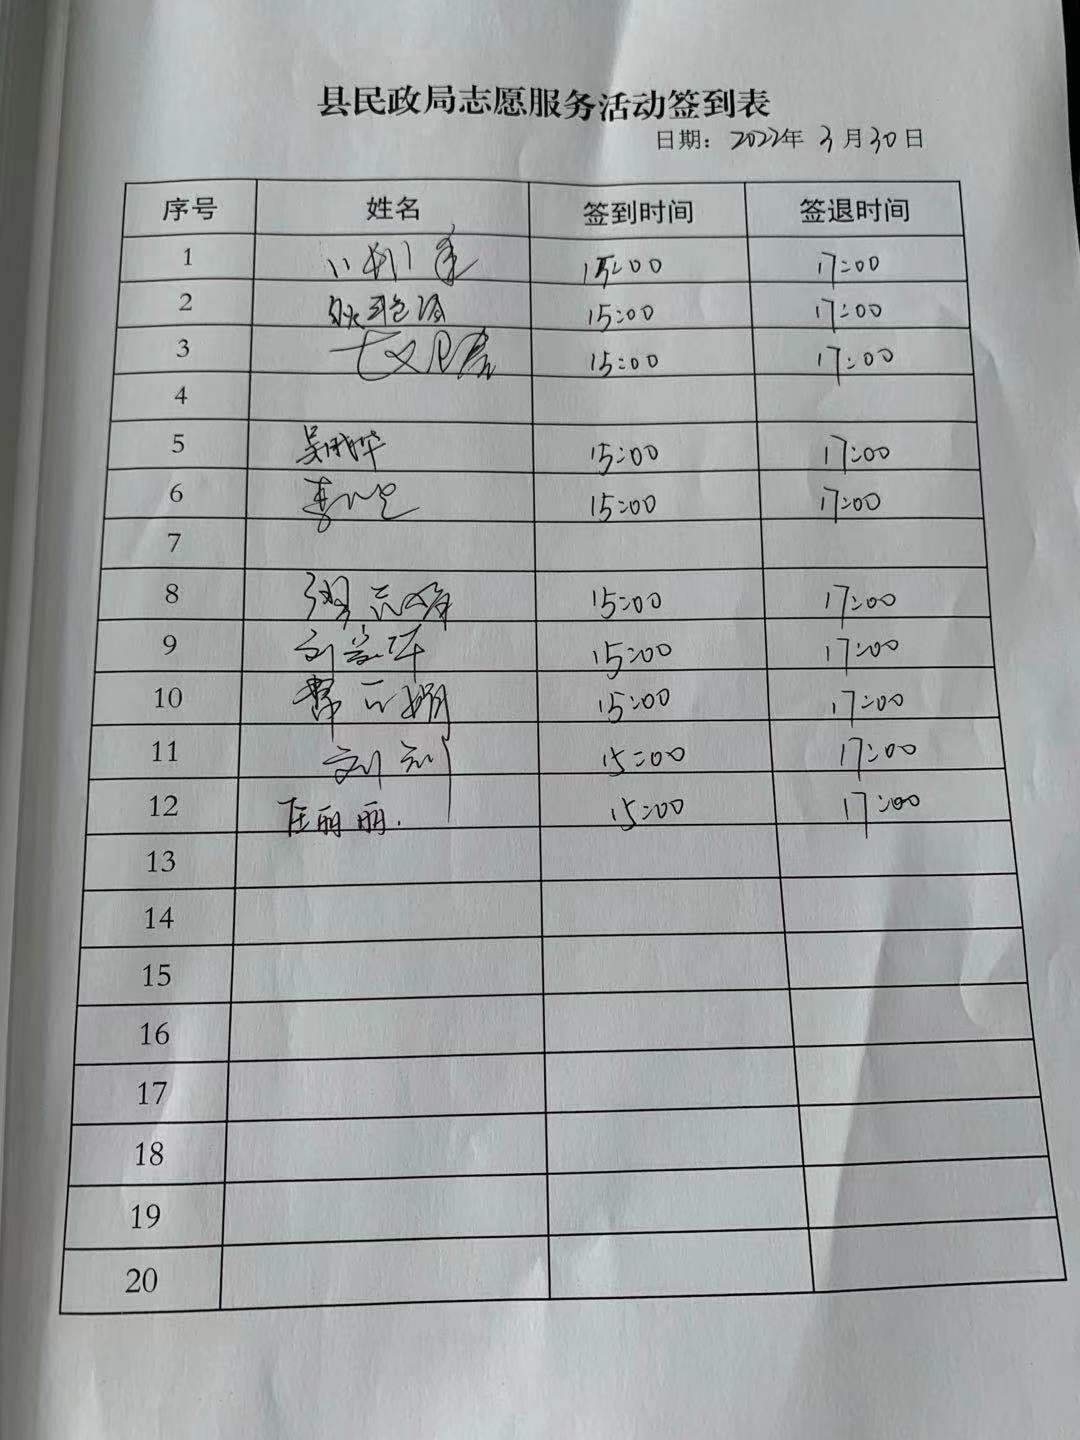 县民政局志愿服务活动签到表
日期：2022年 3月30日
序号 姓名 签到时间 签退时间
1 15:00 17:00
2 15:00 17:00
3 15:00 17:00
4
5 15:00 17:00
6 15:00 17:00
7
8 15:00 17:00
9 15:00 17:00
10 15:00 17:00
11 15:00 17:00
12 任丽丽. 15:00 17:00
13
14
15
16
17
18
19
20